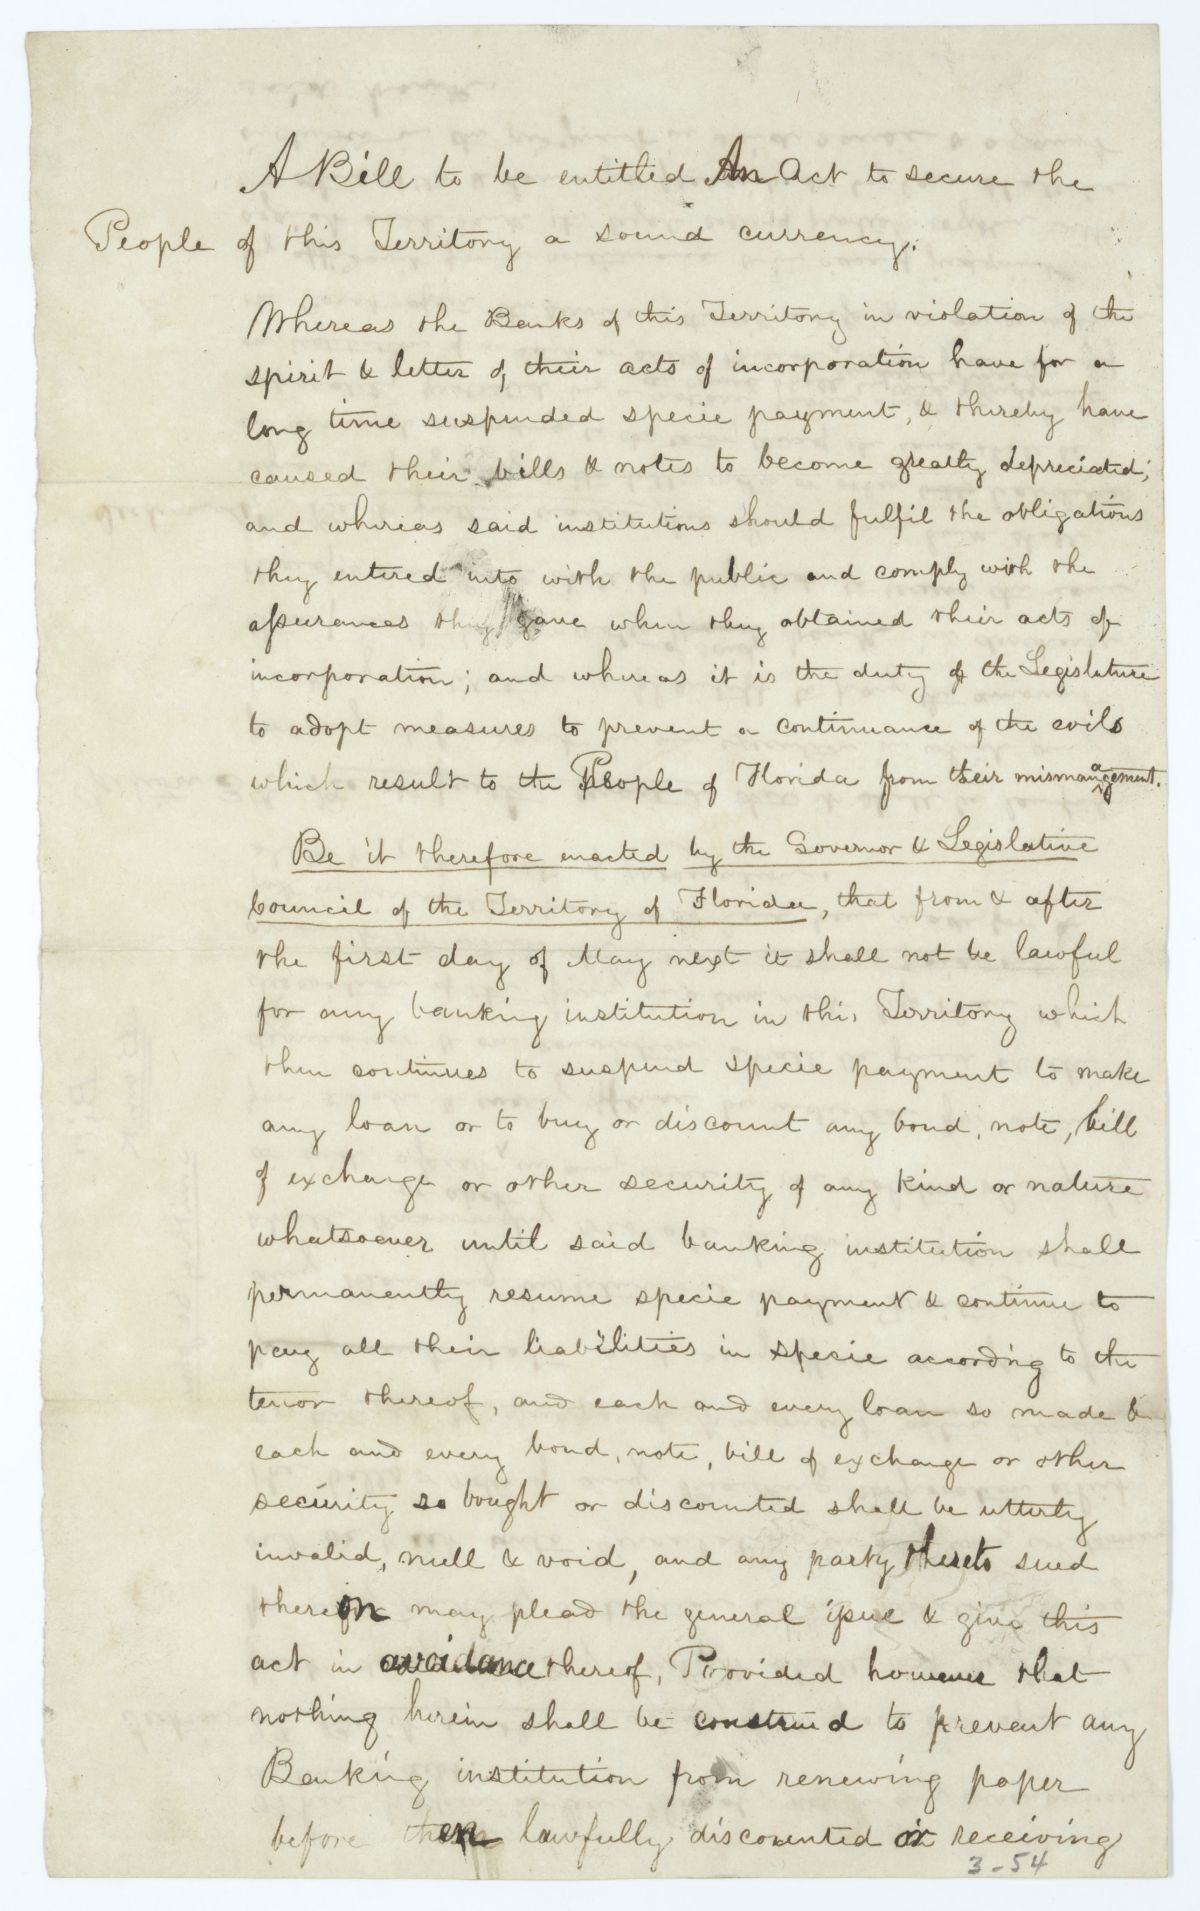 A Bill to be entitled An Act to secure the
People of this Territory a sound currency.
Whereas the Banks of this Territory in violation of the
spirit & letter of their acts of incorporation have for a
long time suspended specie payment, & thereby have
caused their bills & notes to become greatly depreciated;
and whereas said institutions should fulfil the obligations
they entered into with the public and comply with the
assurances they gave when they obtained their acts of
incorporation; and whereas it is the duty of the Legislature
to adopt measures to prevent a continuance of the evils
which result to the People of Florida from their mismanagement.
Be it therefore enacted by the Governor & Legislative
Council of the Territory of Florida, that from & after
the first day of May next it shall not be lawful
for any banking institution in this Territory which
then continues to suspend specie payment to make
any loan or to buy or discount any bond, note, bill
of exchange or other security of any kind or nature
whatsoever until said banking institution shall
permanently resume specie payment & continue to
pay all their liabilities in specie according to the
tenor thereof, and each and every loan so made &
each and every bond, note, bill of exchange or other
security so bought or discounted shall be utterly
invalid, null & void, and any party thereto sued
thereon may plead the general issue & give this
act in avoidance thereof, Provided however that
nothing herein shall be construed to prevent any
Banking institution from renewing paper
before then lawfully discounted or receiving
3-54